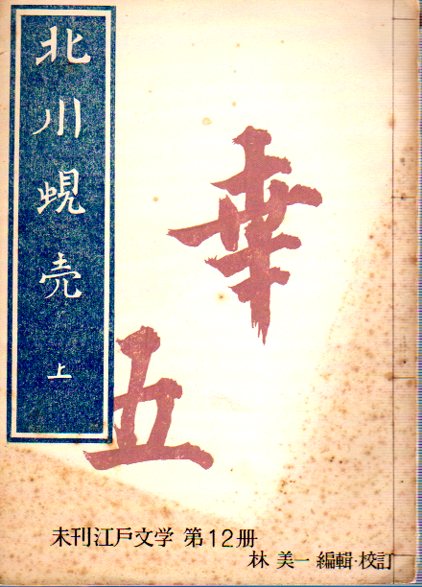 北川蜆売
上
幸
五
未刊江戸文学 第12册
林 美一 編輯·校訂